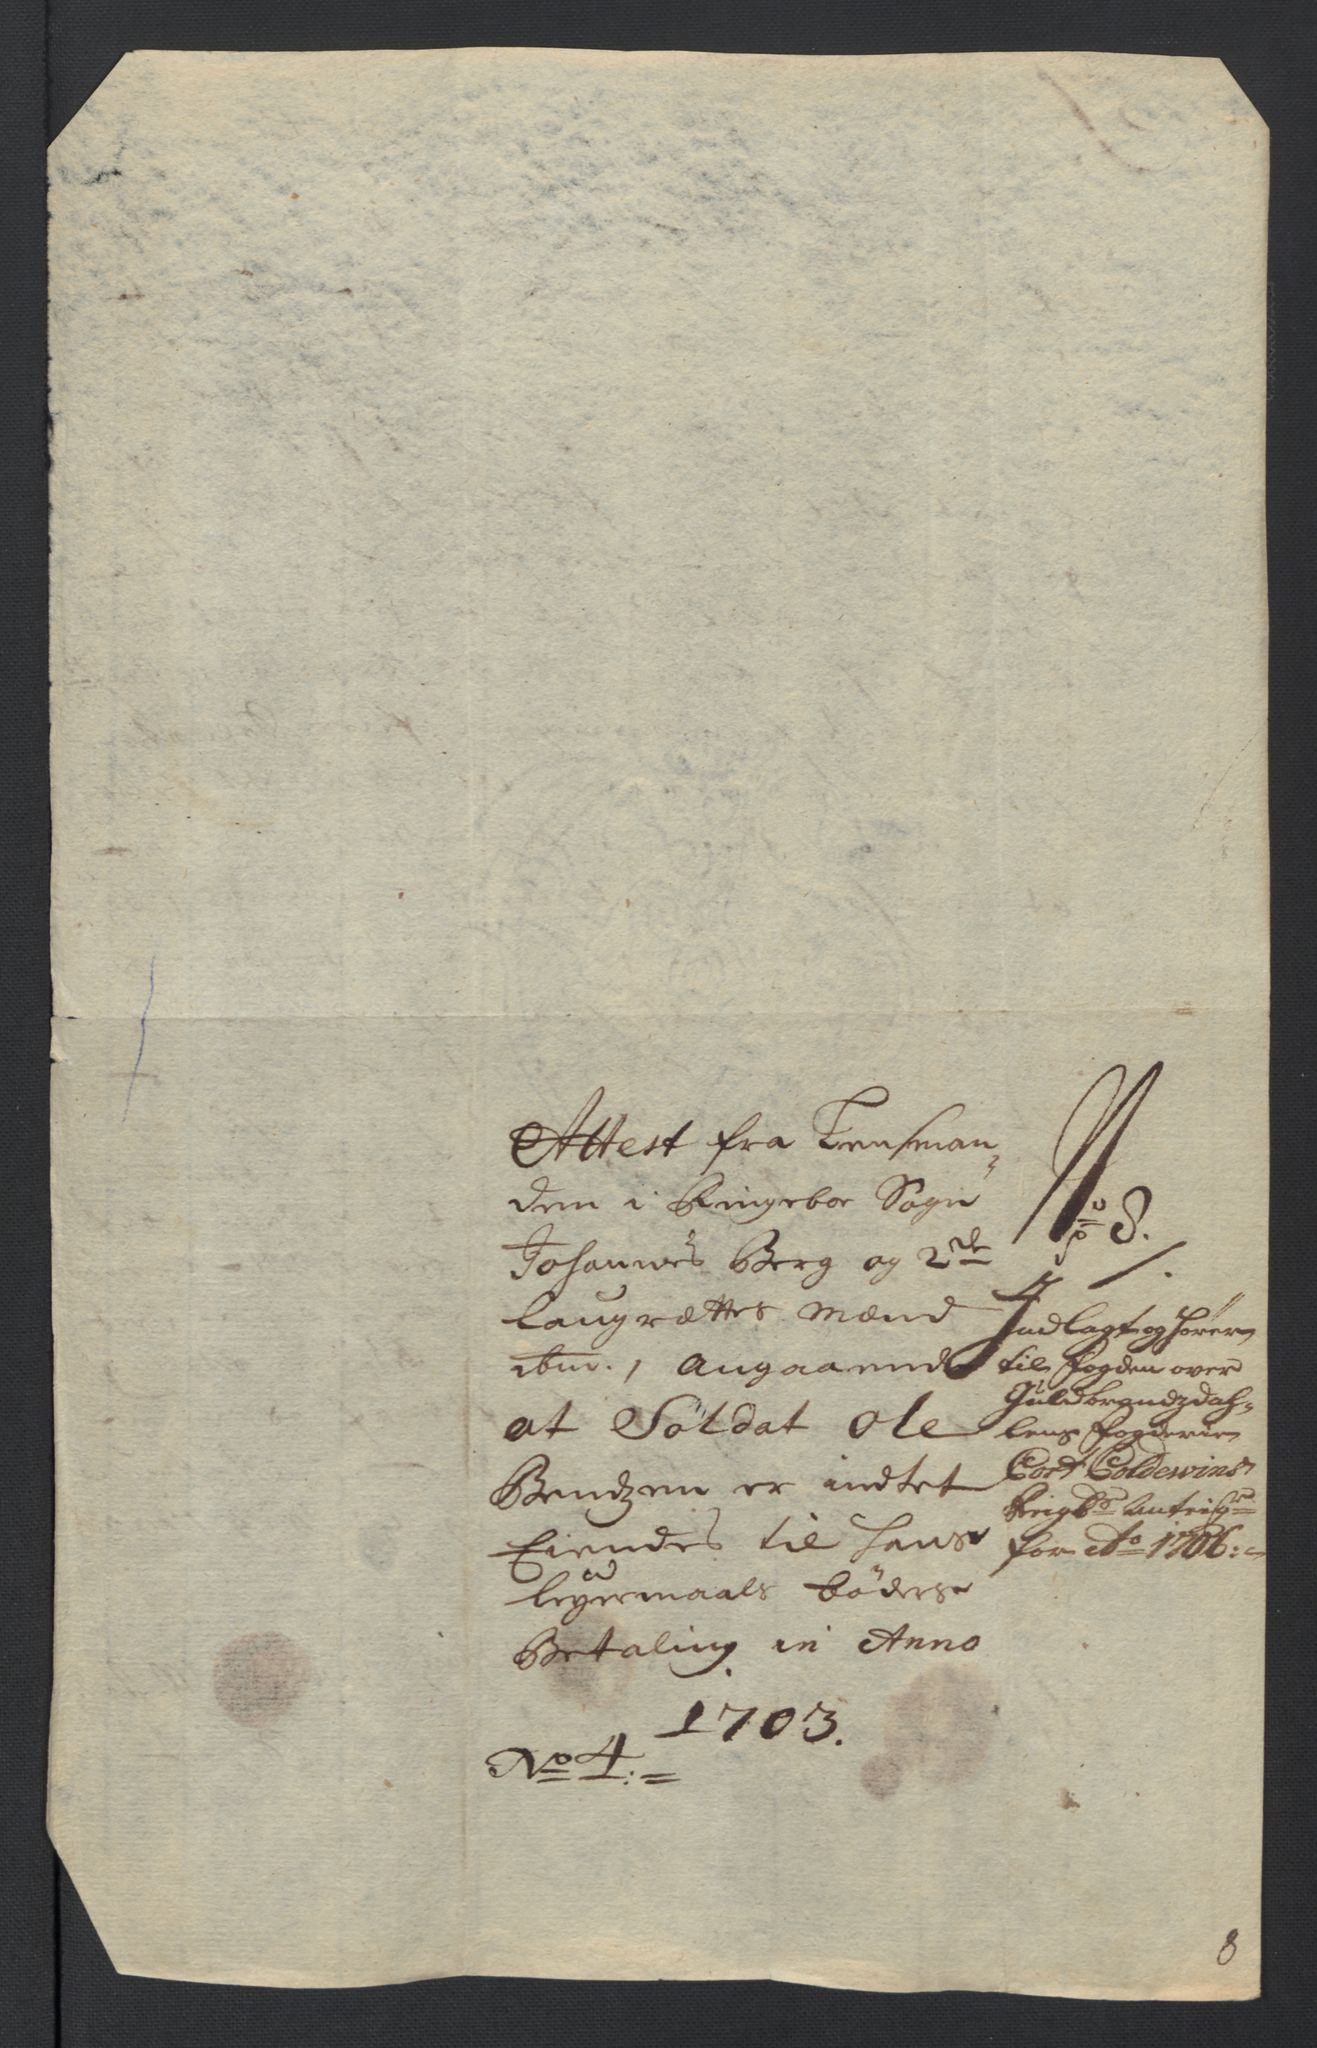 Attest fra Lensman-
den i Ringeboe Sogn
Johannes Berg og 2de
laugrettes Mænd
ibm., angaaende
at Soldat Ole
Bendzen er indtet
Eiendes til hans
leyermaals bøders
Betaling in Anno
1703.
No 4:=
No 8.
Indlagt og hører
til Fogden over
Guldbrandzdah-
lens Fogderie
Cort Coldewins
for Ao 1706:=
8